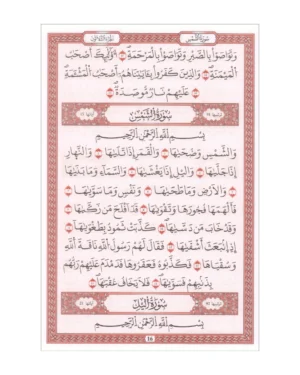 سورة الشمس
وتواصوا بالصبر وتواصوا بالمرحمة ۝ أولئك أصحب
الميمنة ۝ والذين كفروا بـايتنا هم أصحب المشـمة
۝ عليهم نار مؤصدة ۝
سورة الشمس
بسم الله الرحمن الرحيم
والشمس وضحىها ۝ والقمر إذا تلىها ۝ والنهار
إذا جلىها ۝ واليل إذا يغشىها ۝ والسماء وما بنىها
۝ والأرض وما طحىها ۝ ونفس وما سوىها ۝
فألهمها فجورها وتقوىها ۝ قد أفلح من زكىها ۝
وقد خاب من دسىها ۝ كذبت ثمود بطغوىها ۝
إذ انبعث أشقىها ۝ فقال لهم رسول الله ناقة الله
وسقيها ۝ فكذبوه فعقروها فدمدم عليهم ربهم
بذنبهم فسوىها ۝ ولا يخاف عقبها ۝
سورة اليل
بسم الله الرحمن الرحيم
16